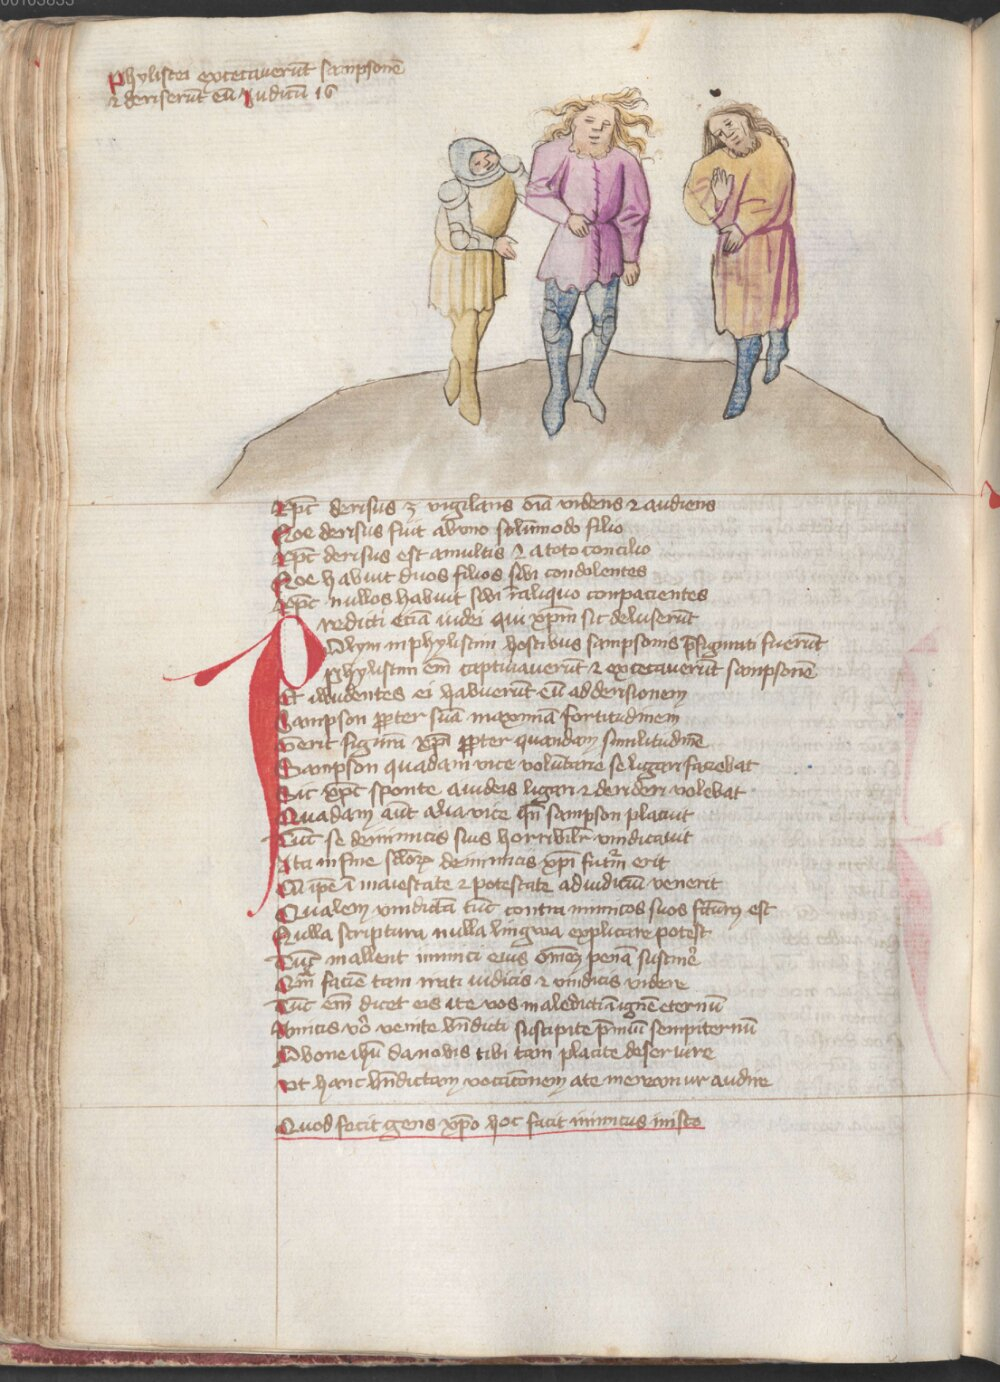 00103833
Phylistei excecaverūt sampsonē
⁊ deriserūt eū Judicū 16
Xp̄c derisus ʒ vigilans oīa videns ⁊ audiens
Noe derisus fuit ab uno solūmodo filio
Xp̄c derisus est a multis ⁊ a toto concilio
Noe habuit duos filios sibi condolentes
Xp̄c nullos habuit sibi ī aliquo compacientes
Predicti etiā iudei qui xp̄m sic deluserūt
Olym in phylistim hostibus sampsonis p̄figurati fuerūt
Phylistim em̄ captivaverūt ⁊ excecaverūt sampsonē
Et illudentes ei habuerūt eū ad derisionem
Sampson ꝓpter suā maximā fortitudinem
Gerit figurā xp̄i ꝓpter quandam similitudinē
Sampson quadam vice volūtarie se ligari faciebat
Sic xp̄c sponte a iudeis ligari ⁊ derideri volebat
Quadam aūt alia vice qn̄ sampson placuit
Tūc se de inimicis suis horribilr̄ vindicavit
Ita in fine sclorꝫ de inimicis xp̄i futr̄m erit
Cū ip̄e ī maiestate ⁊ potestate ad iudiciū venerit
Qualem vindictā tūc contra inimicos suos fcūrꝰ est
Nulla scriptura nulla lingwa explicare potest
Tūc mallent inimici eius om̄em penā sustinē
Qm̄ faciē tam irati iudicis ⁊ vindicis videre
Tūc em̄ dicet eis ite vos maledicti ī ignē eternū
Amicis vo̊ venite bn̄dicti suscipite p̄miū sempiternū
O bone ihū da nobis tibi tam placite deservire
Vt hanc bn̄dictam vocacōnem a te mereamur audire
Quod fecit gens xp̄o hoc facit inimicus iusto